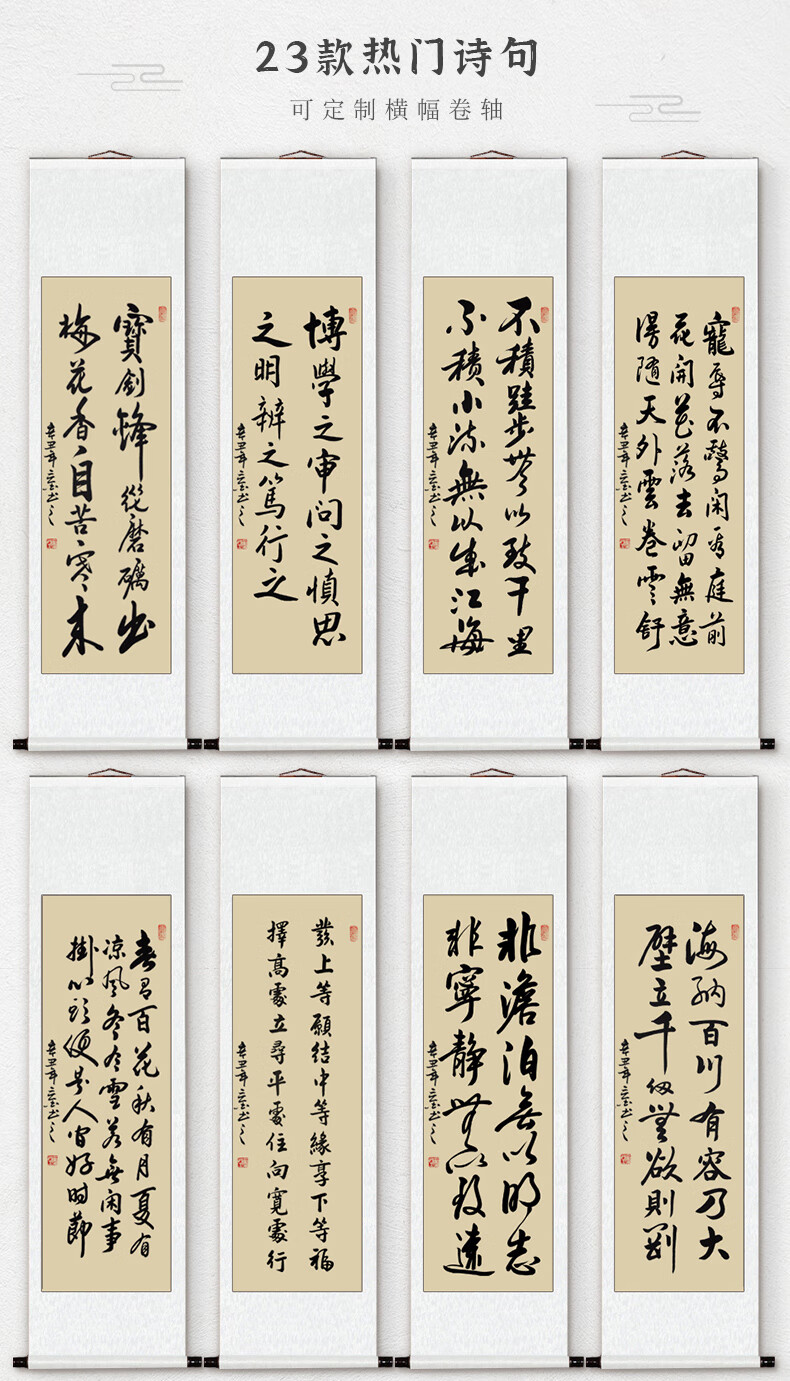 23款热门诗句
可定制横幅卷轴
寶劍鋒從磨礪出
梅花香自苦寒來
辛丑年
博學之审问之慎思
之明辨之篤行之
辛丑年
不積跬步無以致千里
不積小流無以成江海
辛丑年
寵辱不驚閑看庭前
花開花落去留無意
漫随天外雲卷雲舒
辛丑年
春有百花秋有月夏有
凉風冬有雪若無閑事
掛心頭便是人間好时節
辛丑年
發上等願結中等緣享下等福
擇高處立尋平處住向寬處行
辛丑年
非澹泊無以明志
非寧靜無以致遠
辛丑年
海納百川有容乃大
壁立千仞無欲則剛
辛丑年